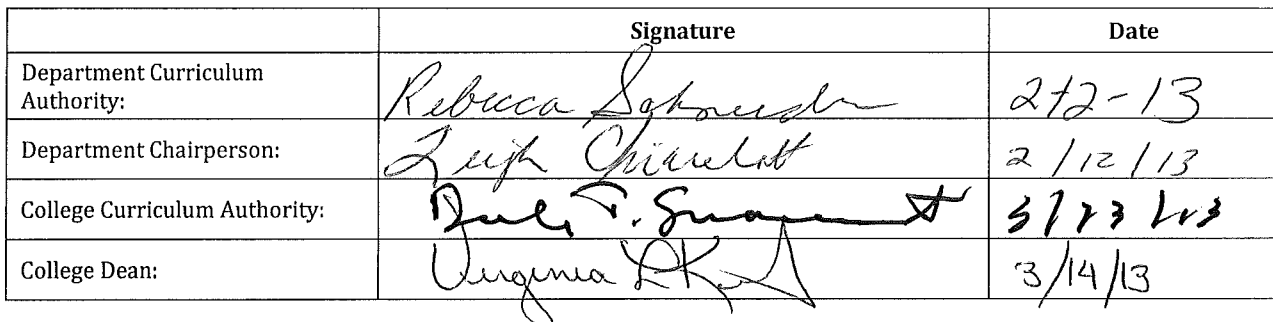 Signature Date
Department Curriculum
Authority: Rebecca Schneider 2-12-13
Department Chairperson: Leigh Chiarelott 2/12/13
College Curriculum Authority: T.
College Dean: Virginia L 3/14/13